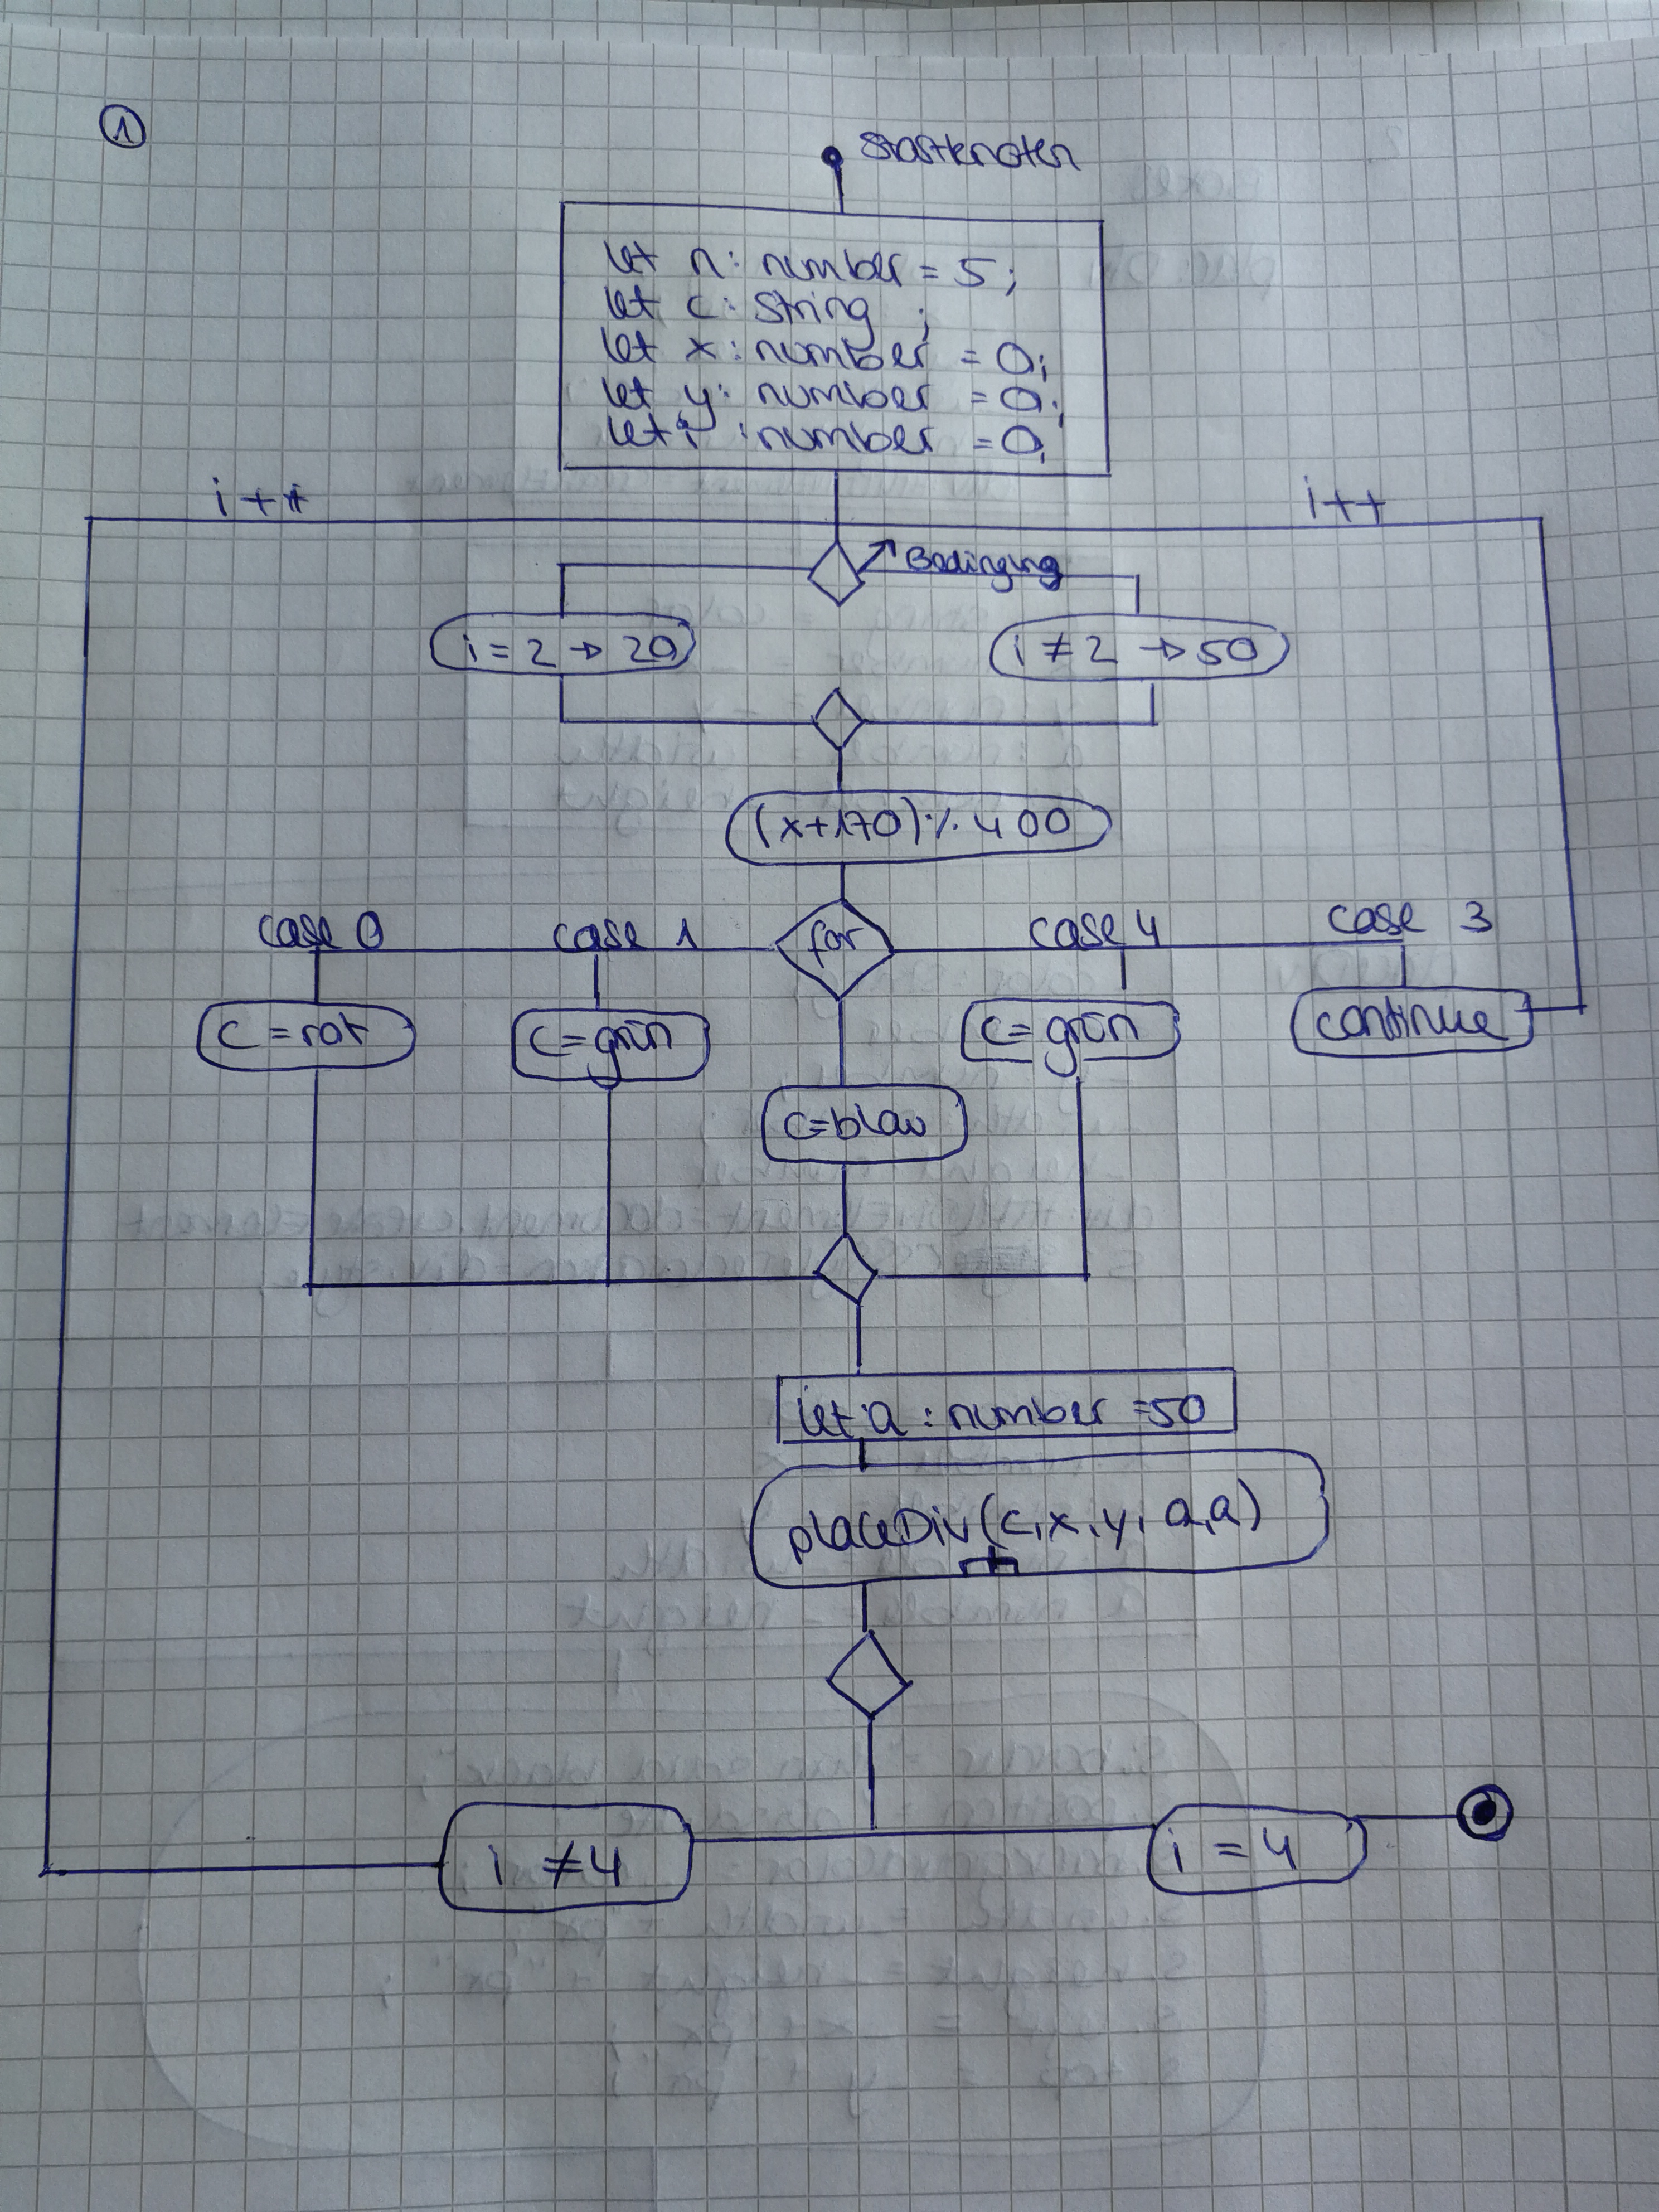 1
Startknoten
let n: number = 5;
let c: string ;
let x: number = 0;
let y: number = 0;
let i : number = 0;
i ++
i ++
Bedingung
i = 2 → 20
i ≠ 2 → 50
(x+170) % 400
case 0
case 1
for
case 4
case 3
c = rot
c = grün
c = grün
continue
c = blau
let a : number = 50
placeDiv(c, x, y, a, a)
i ≠ 4
i = 4